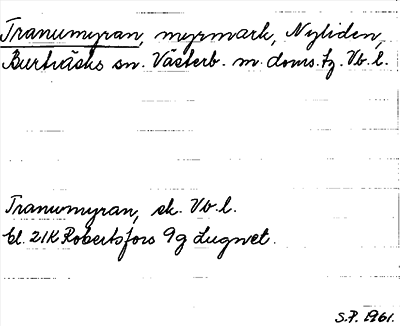 Tranumyran, myrmark, Nyliden,
Burträsks sn. Västerb. m. doms. tg. Vb. l.
Tranumyran, sk. Vb l.
bl. 21K Robertsfors 9g Lugnet.
S.P. 1961.